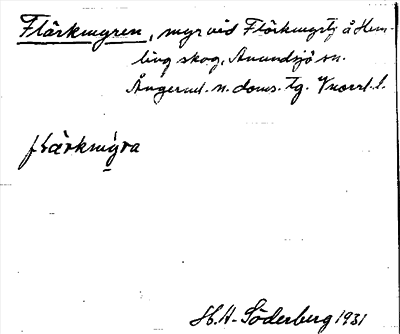 Flärkmyren, myr vid Flärkmyrtj å Hem-
ling skog, Anundsjö sn.
Ångerml. n. doms. tg. Vnorrl. l.
flärkmýra
H. A. Söderberg 1931